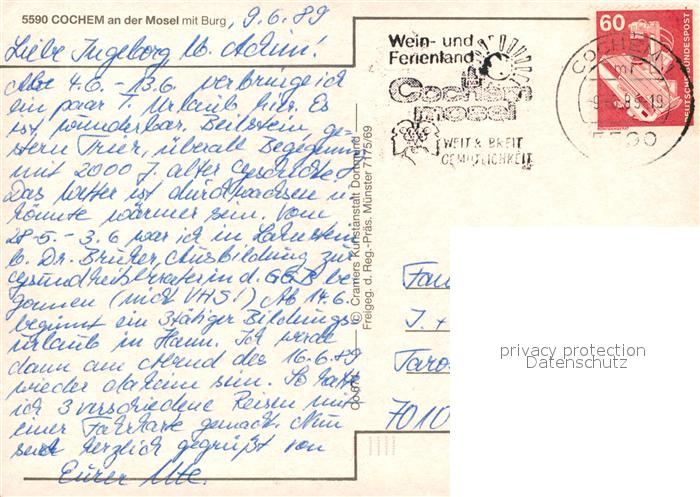 5590 COCHEM an der Mosel mit Burg, 9.6.89
Liebe Ingeborg u. Achim!
Ab 4.6. - 13.6. verbringe ich
ein paar T. Urlaub hier. Es
ist wunderbar. Beilstein, ge-
stern Trier, überall Begegnung
mit 2000 J. alter Geschichte!
Das Wetter ist durchwachsen u.
könnte wärmer sein. Vom
28.5. - 3.6 war ich in Lahnstein
b. Dr. Bruker Ausbildung zur
Gesundheitsberaterin d. GGB be-
gonnen (nicht VHS!) Ab 14.6.
beginnt ein 3tätiger Bildungs-
urlaub in Hann. Ich werde
dann am Abend des 16.6.89
wieder daheim sein. So habe
ich 3 verschiedene Reisen mit
einer Fahrkarte gemacht. Nun
seid herzlich gegrüßt von
Eurer Ute.
© Cramers Kunstanstalt Dortmund
Freigeg. d. Reg.-Präs. Münster 7175/69
Wein- und
Ferienland
Cochem
mosel
WEIT & BREIT
GEMÜTLICHKEIT
COCHEM
5590
60
DEUTSCHE BUNDESPOST
Fam
I. +
Taros
7010
privacy protection
Datenschutz